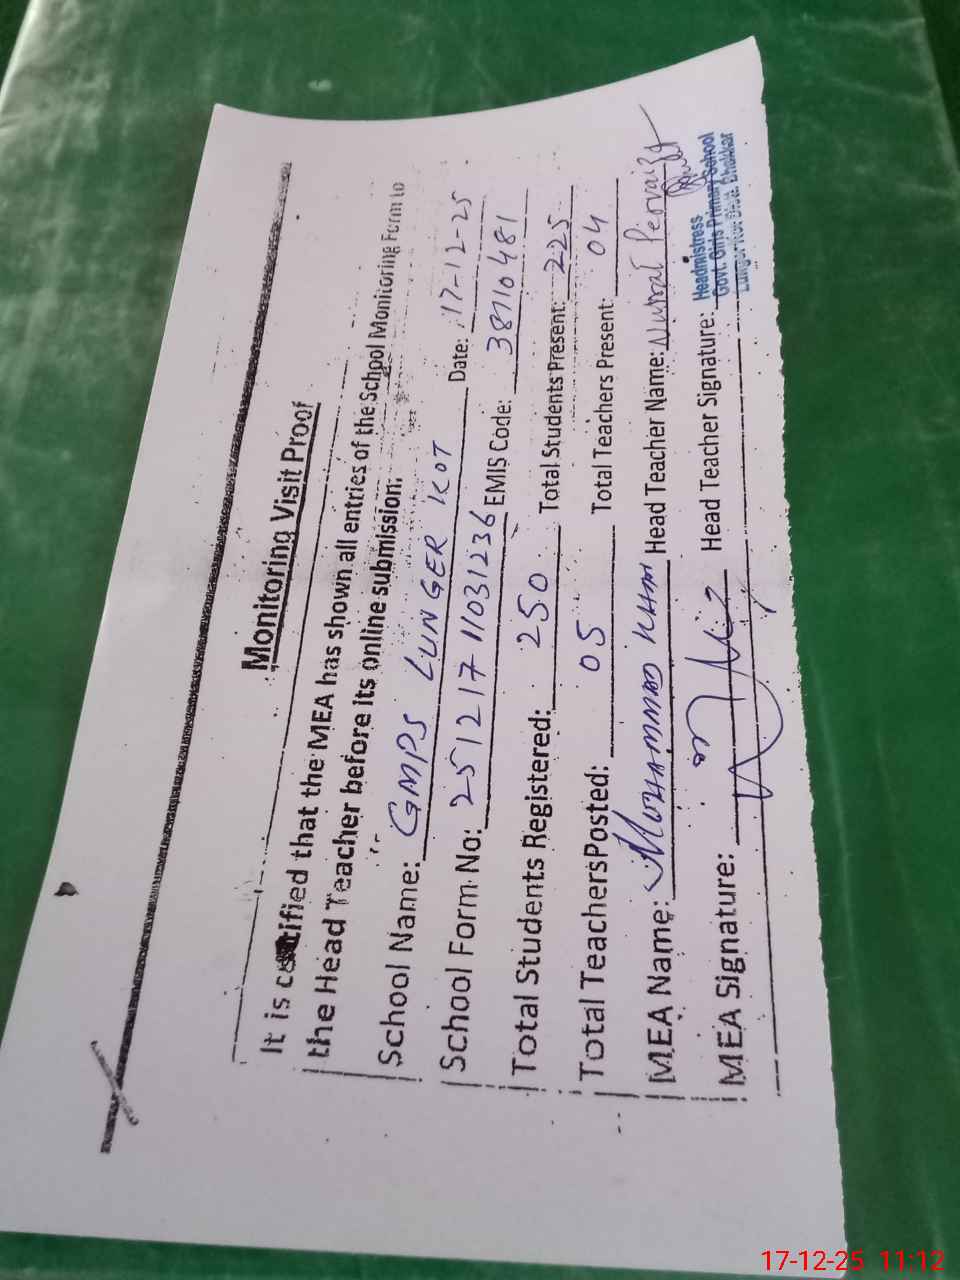 Monitoring Visit Proof
It is certified that the MEA has shown all entries of the School Monitoring Form to
the Head Teacher before its online submission.
School Name: GMPS LUNGER KOT Date: 17-12-25
School Form No: 25121711031236 EMIS Code: 38710481
Total Students Registered: 250 Total Students Present: 225
Total TeachersPosted: 05 Total Teachers Present: 04
MEA Name: MUHAMMAD KHAN Head Teacher Name: Nusrat Pervaiz
MEA Signature: Head Teacher Signature:
Headmistress
Govt. Girls Primary School
Lunger Kot Distt. Bhakkar
17-12-25 11:12